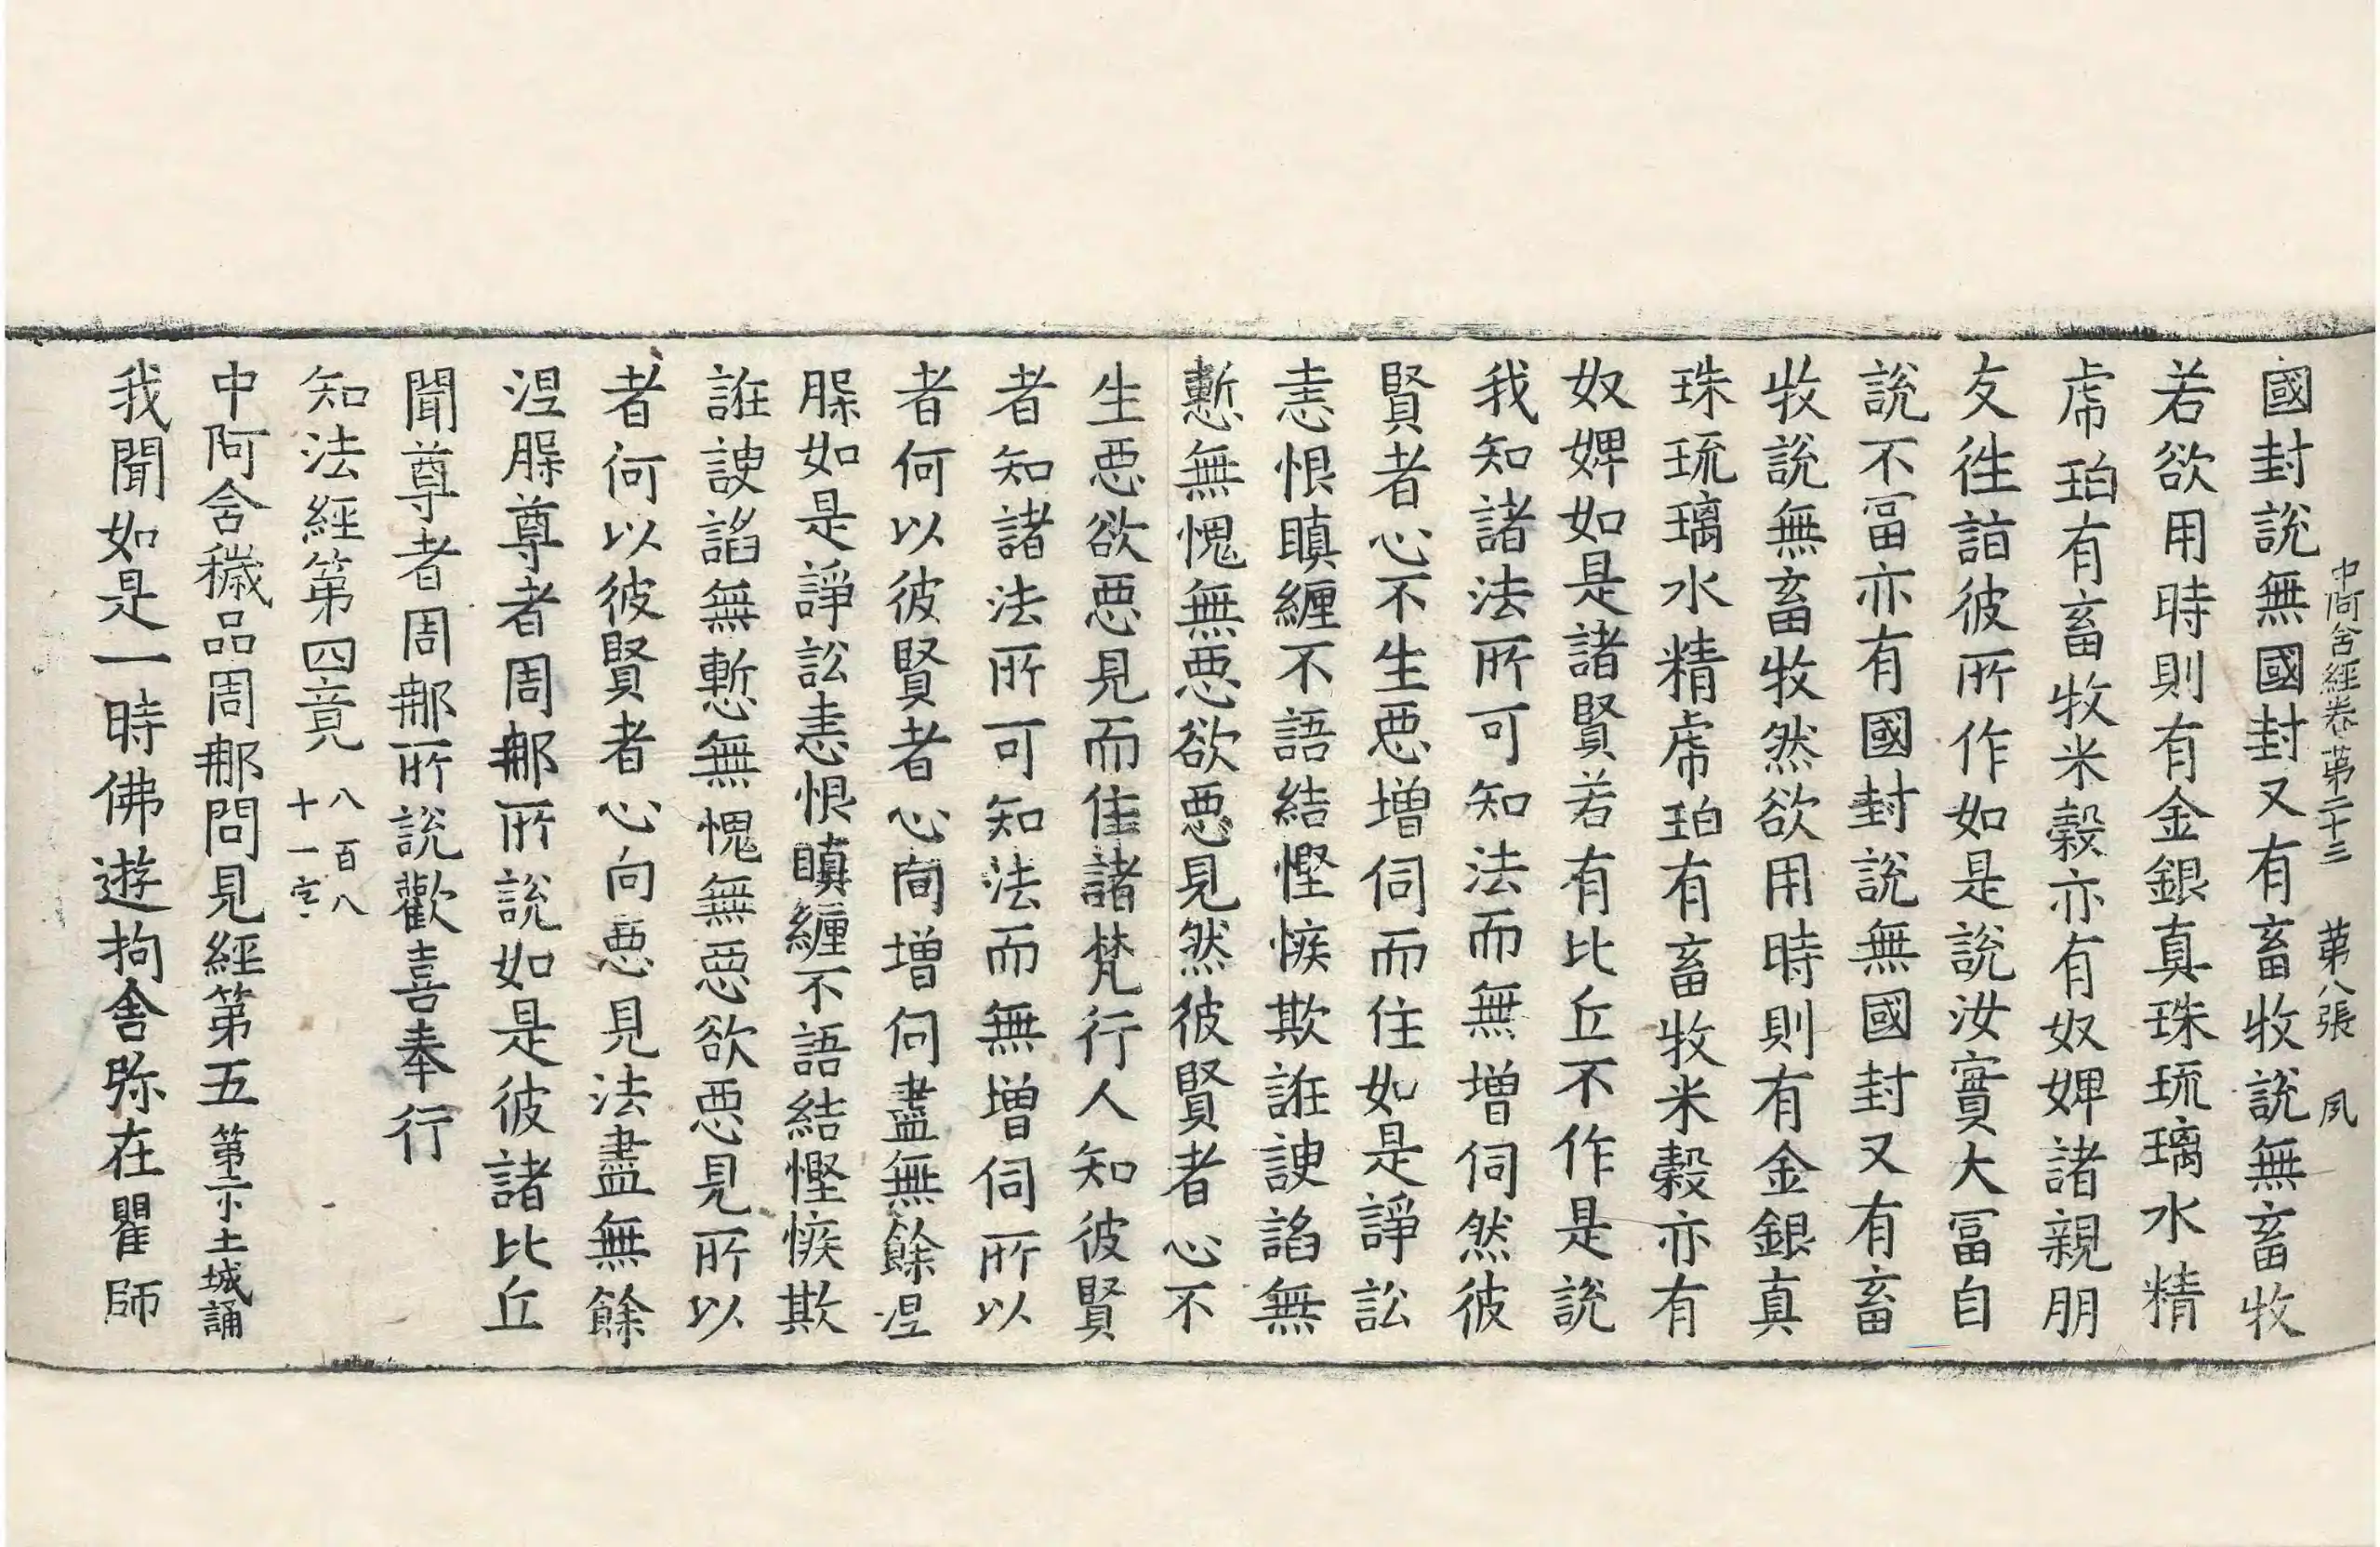 中阿含經卷第二十三　第八張　夙
國封說無國封又有畜牧說無畜牧
若欲用時則有金銀真珠琉璃水精
虎珀有畜牧米糓亦有奴婢諸親朋
友徃詣彼所作如是說汝實大冨自
說不冨亦有國封說無國封又有畜
牧說無畜牧然欲用時則有金銀真
珠琉璃水精虎珀有畜牧米糓亦有
奴婢如是諸賢若有比丘不作是說
我知諸法所可知法而無增伺然彼
賢者心不生惡增伺而住如是諍訟
恚恨瞋纏不語結慳嫉欺誑諛諂無
慙無愧無惡欲惡見然彼賢者心不
生惡欲惡見而住諸梵行人知彼賢
者知諸法所可知法而無增伺所以
者何以彼賢者心向增伺盡無餘涅
槃如是諍訟恚恨瞋纏不語結慳嫉欺
誑諛諂無慙無愧無惡欲惡見所以
者何以彼賢者心向惡見法盡無餘
涅槃尊者周那所說如是彼諸比丘
聞尊者周那所說歡喜奉行
知法經第四竟 八百八十一字
中阿含穢品周那問見經第五 第二小土城誦
我聞如是一時佛遊拘舍弥在瞿師